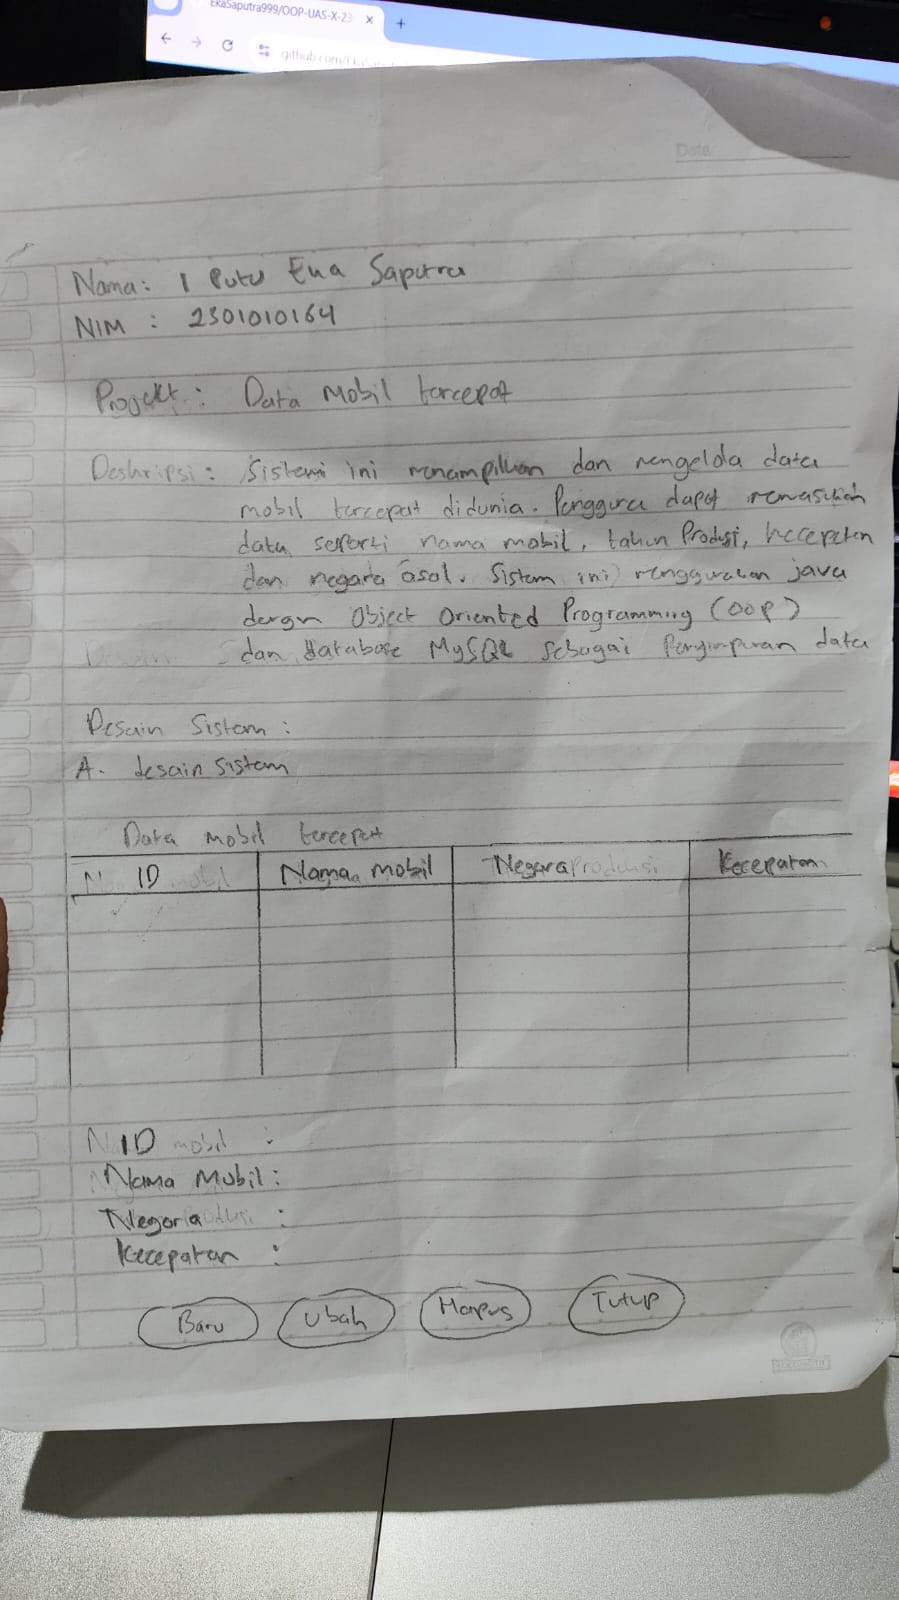 EkaSaputra999/OOP-UAS-X-23
github.com/
Date
Nama: I Putu Eka Saputra
NIM : 2301010164
Projekt : Data Mobil tercepat
Deskripsi : Sistem ini menampilkan dan mengelola data
mobil tercepat didunia. Pengguna dapat memasukan
data seperti nama mobil, tahun Produsi, kecepatan
dan negara asal. Sistem ini menggunakan java
dengn Object Oriented Programming (OOP)
dan database MySQL sebagai Penyimpanan data
Desain Sistem :
A. desain sistem
Data mobil tercepat
ID Nama mobil Negara Kecepatan
ID :
Nama Mobil :
Negara :
Kecepatan :
Baru Ubah Hapus Tutup